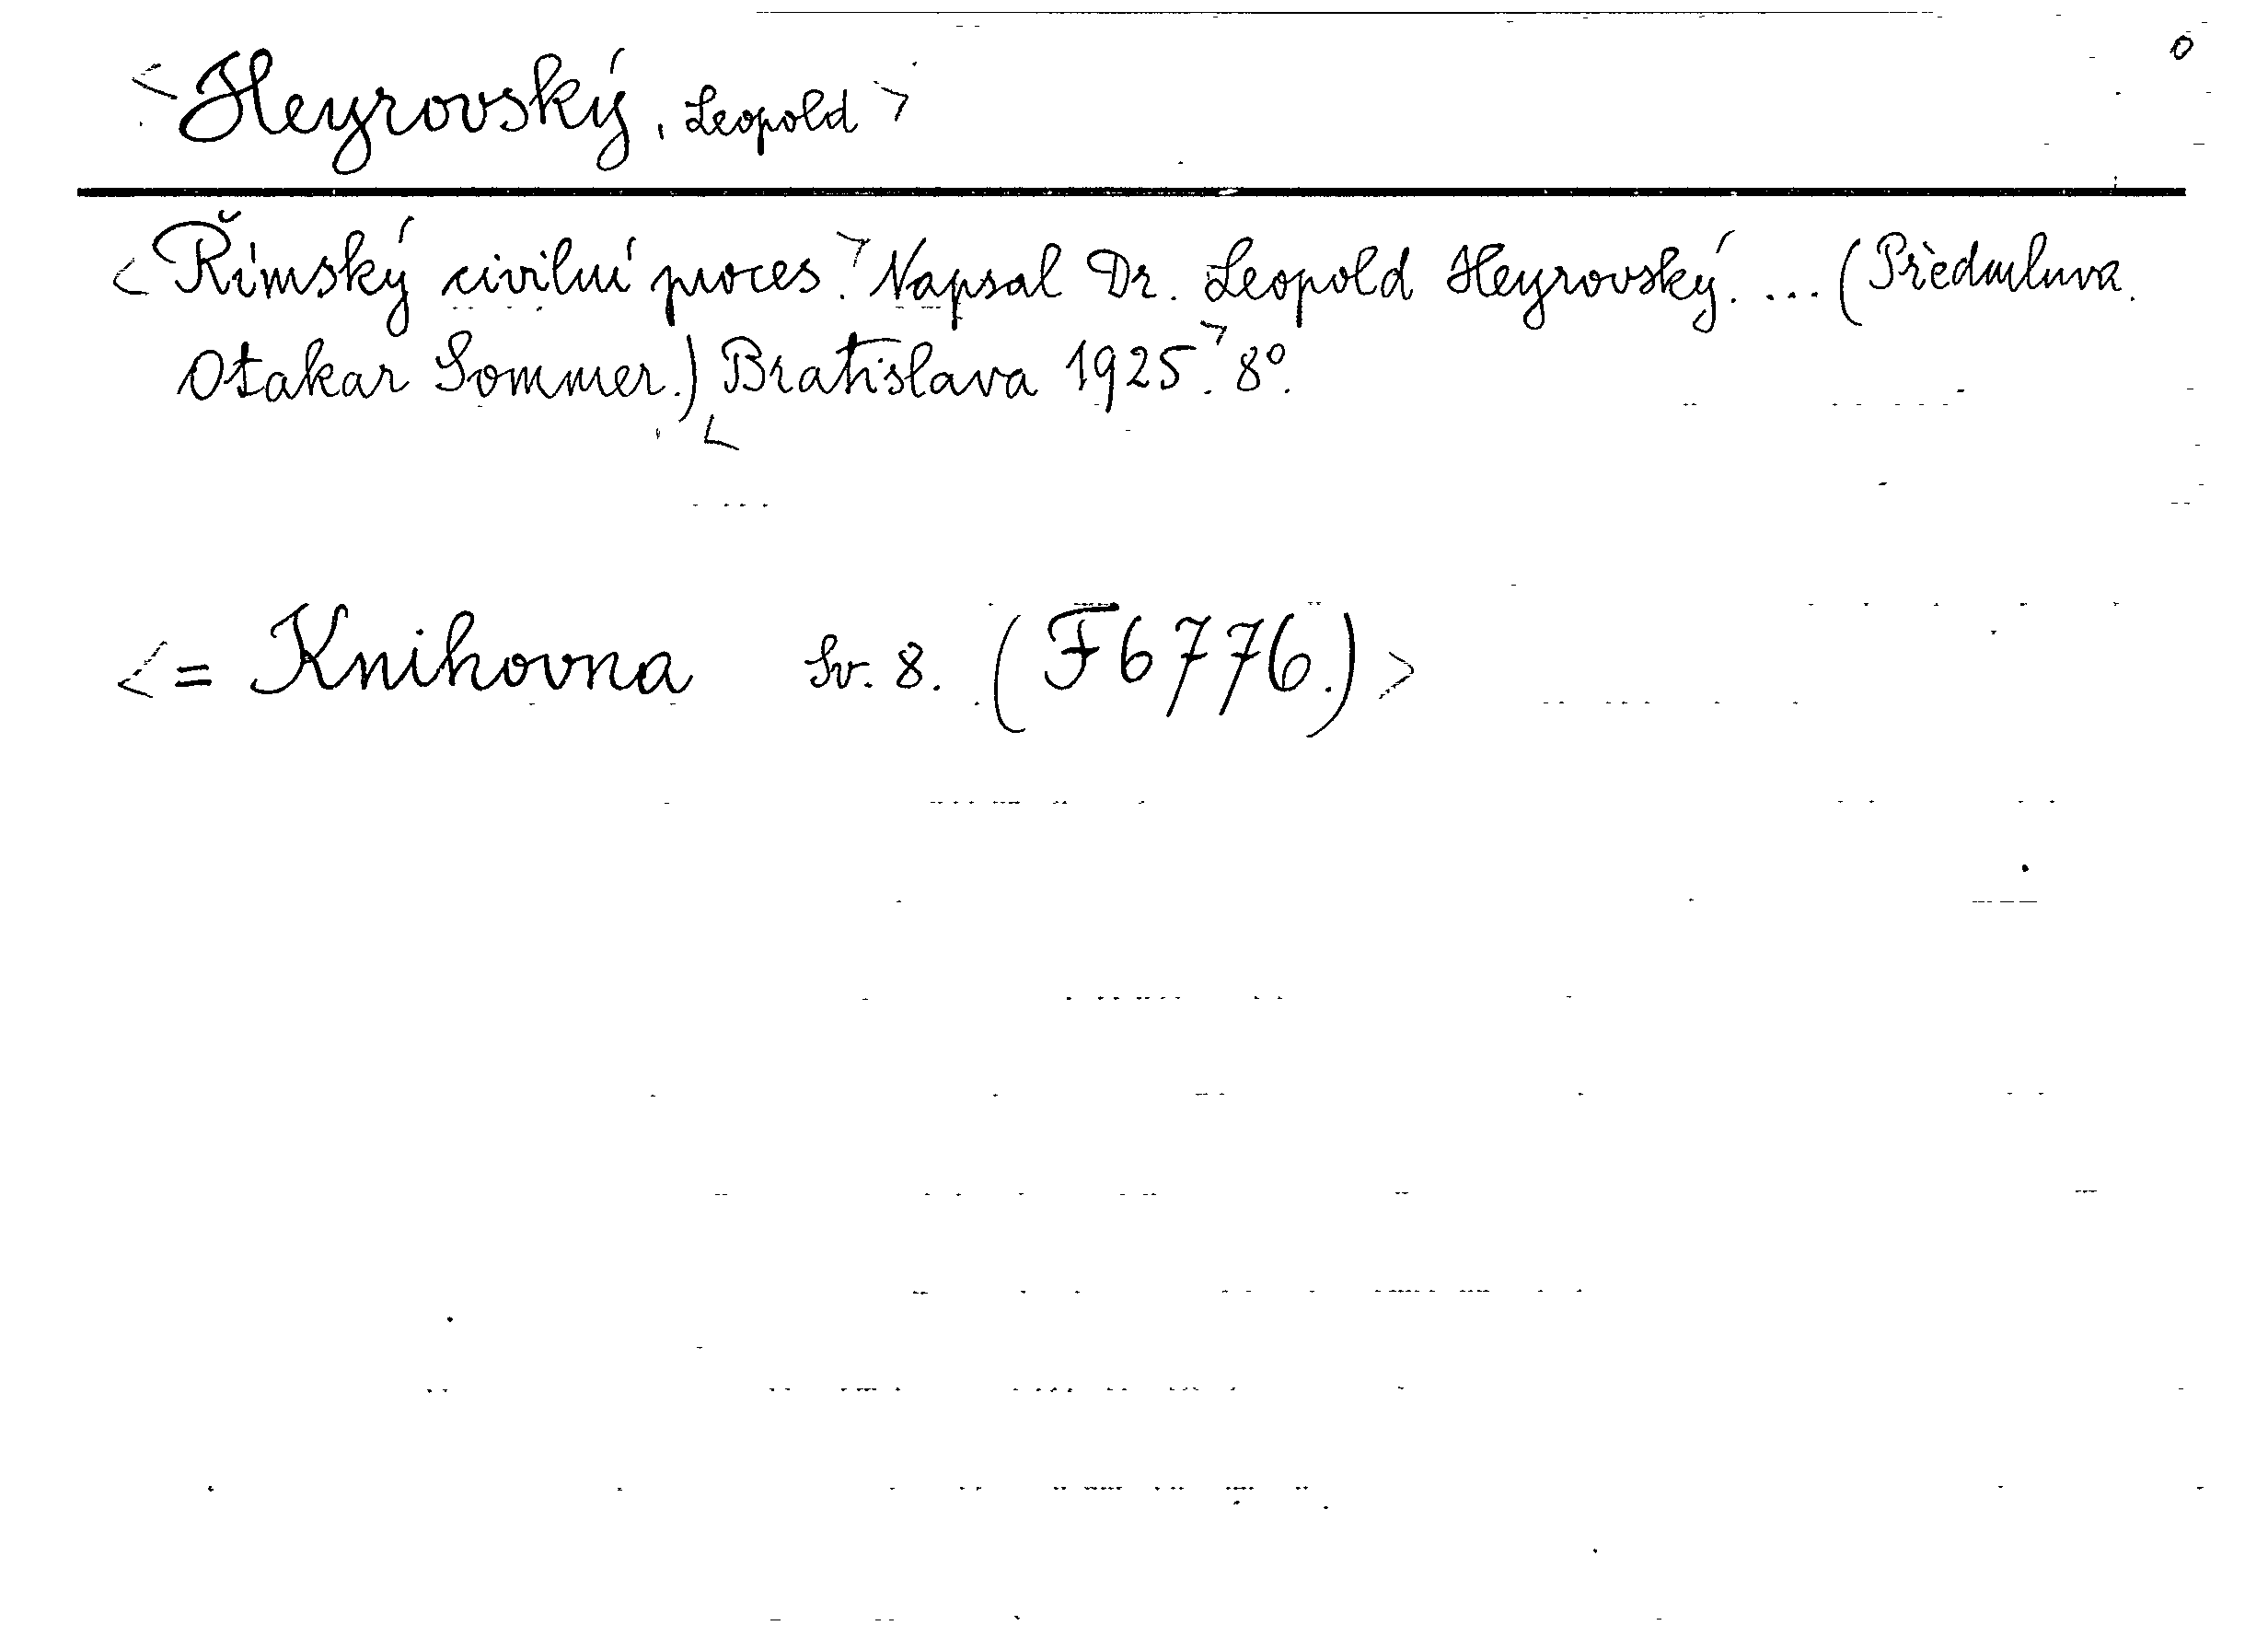 <Heyrovský, Leopold> o
<Římský civilní proces.> Napsal Dr. Leopold Heyrovský. ... (Předmluva.
Otakar Sommer.) <Bratislava 1925.> 8°.
<= Knihovna Sv. 8. (F6776.)>